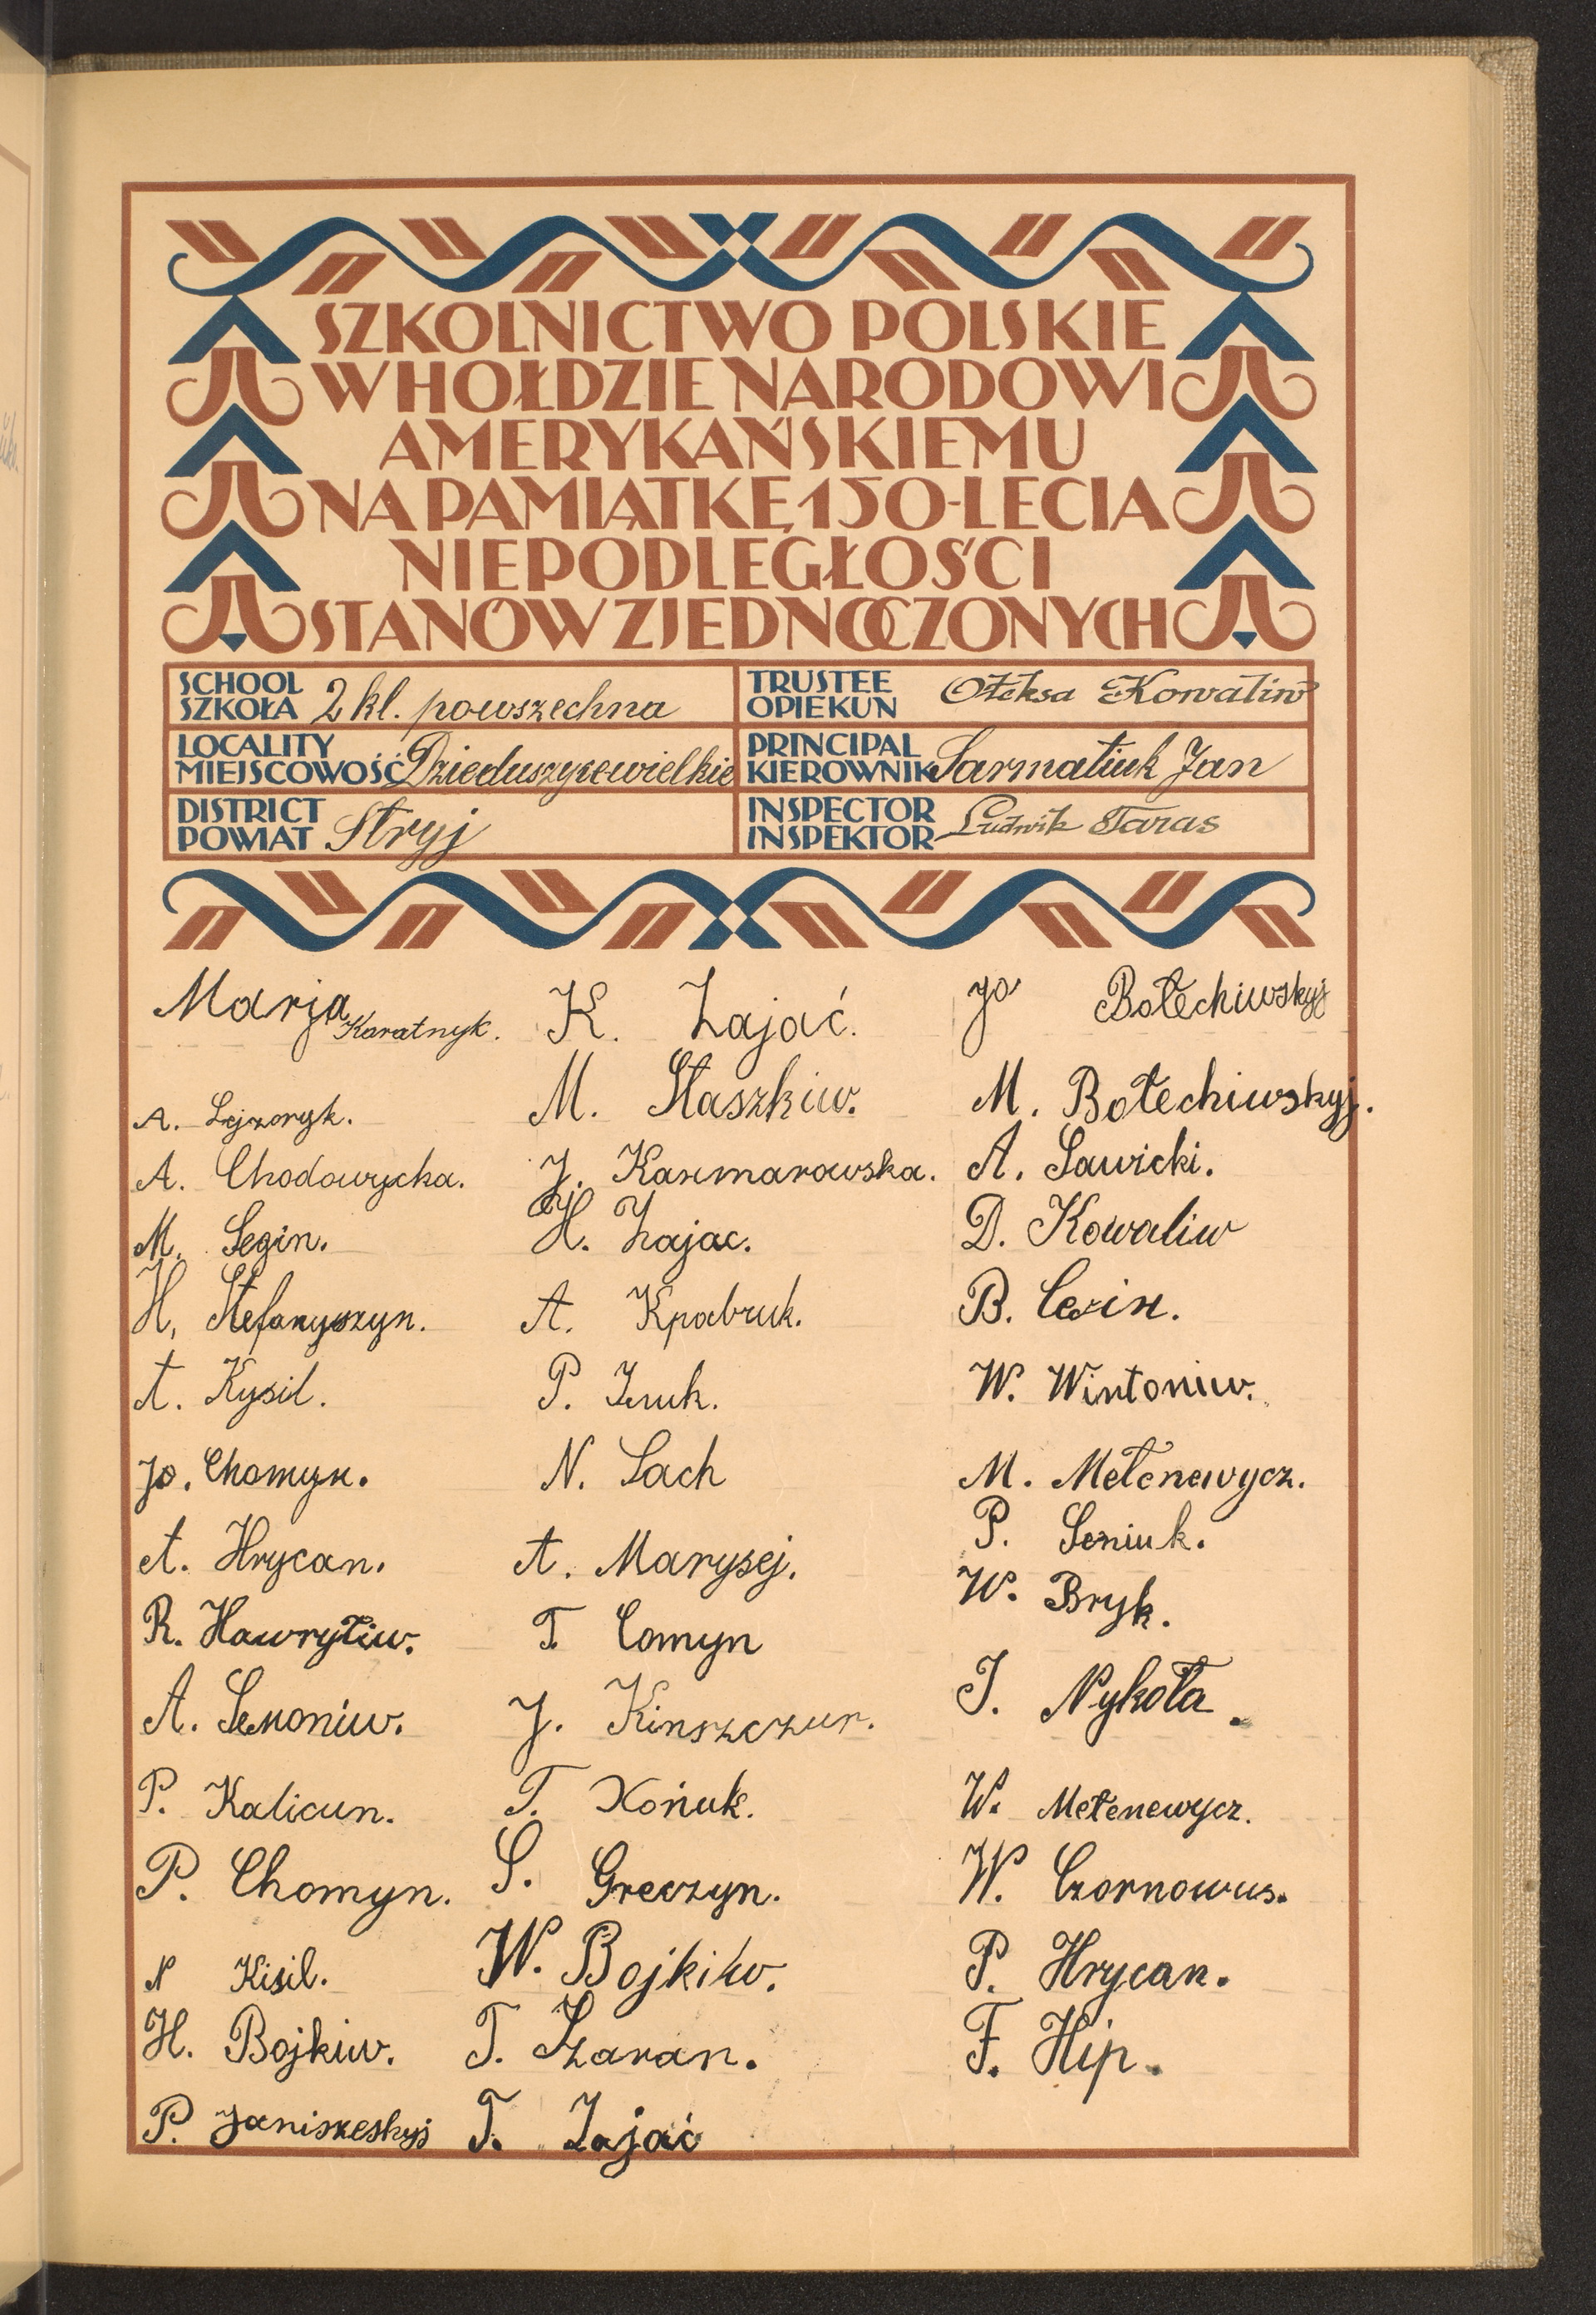 SZKOLNICTWO POLSKIE
W HOŁDZIE NARODOWI
AMERYKAŃSKIEMU
NA PAMIĄTKĘ 150-LECIA
NIEPODLEGŁOŚCI
STANÓW ZJEDNOCZONYCH
SCHOOL
SZKOŁA 2 kl. powszechna
TRUSTEE
OPIEKUN Ołeksa Kowaliw
LOCALITY
MIEJSCOWOŚĆ Dzieduszyce wielkie
PRINCIPAL
KIEROWNIK Sarmatiuk Jan
DISTRICT
POWIAT Stryj
INSPECTOR
INSPEKTOR Ludwik Taras
Marja Karatnyk.
A. Lejzoryk.
A. Chodowycka.
M. Segin.
H. Stefanyszyn.
A. Kysil.
Jo. Chomyn.
A. Hrycan.
R. Hawryliw.
A. Semoniw.
P. Kalicun.
P. Chomyn.
N Kisil.
H. Bojkiw.
P. Janiszeskyj
K. Zajać.
M. Staszkiw.
J. Kaxmarowska.
H. Zajac.
A. Kpabruk.
P. Iruk.
N. Sach
A. Marysej.
T. Comyn
J. Kinszczur.
T. Xońuk.
S. Greczyn.
W. Bojkiw.
T. Szaran.
T. Zajać
Jo Bołechiwskyj
M. Bołechiwskyj.
A. Sawicki.
D. Kowaliw
B.
W. Wintoniw.
M. Mełenewycz.
P. Seniuk.
W. Bryk.
I. Nykoła.
W. Mełenewycz.
W. Czornowus.
P. Hrycan.
F. Hip.